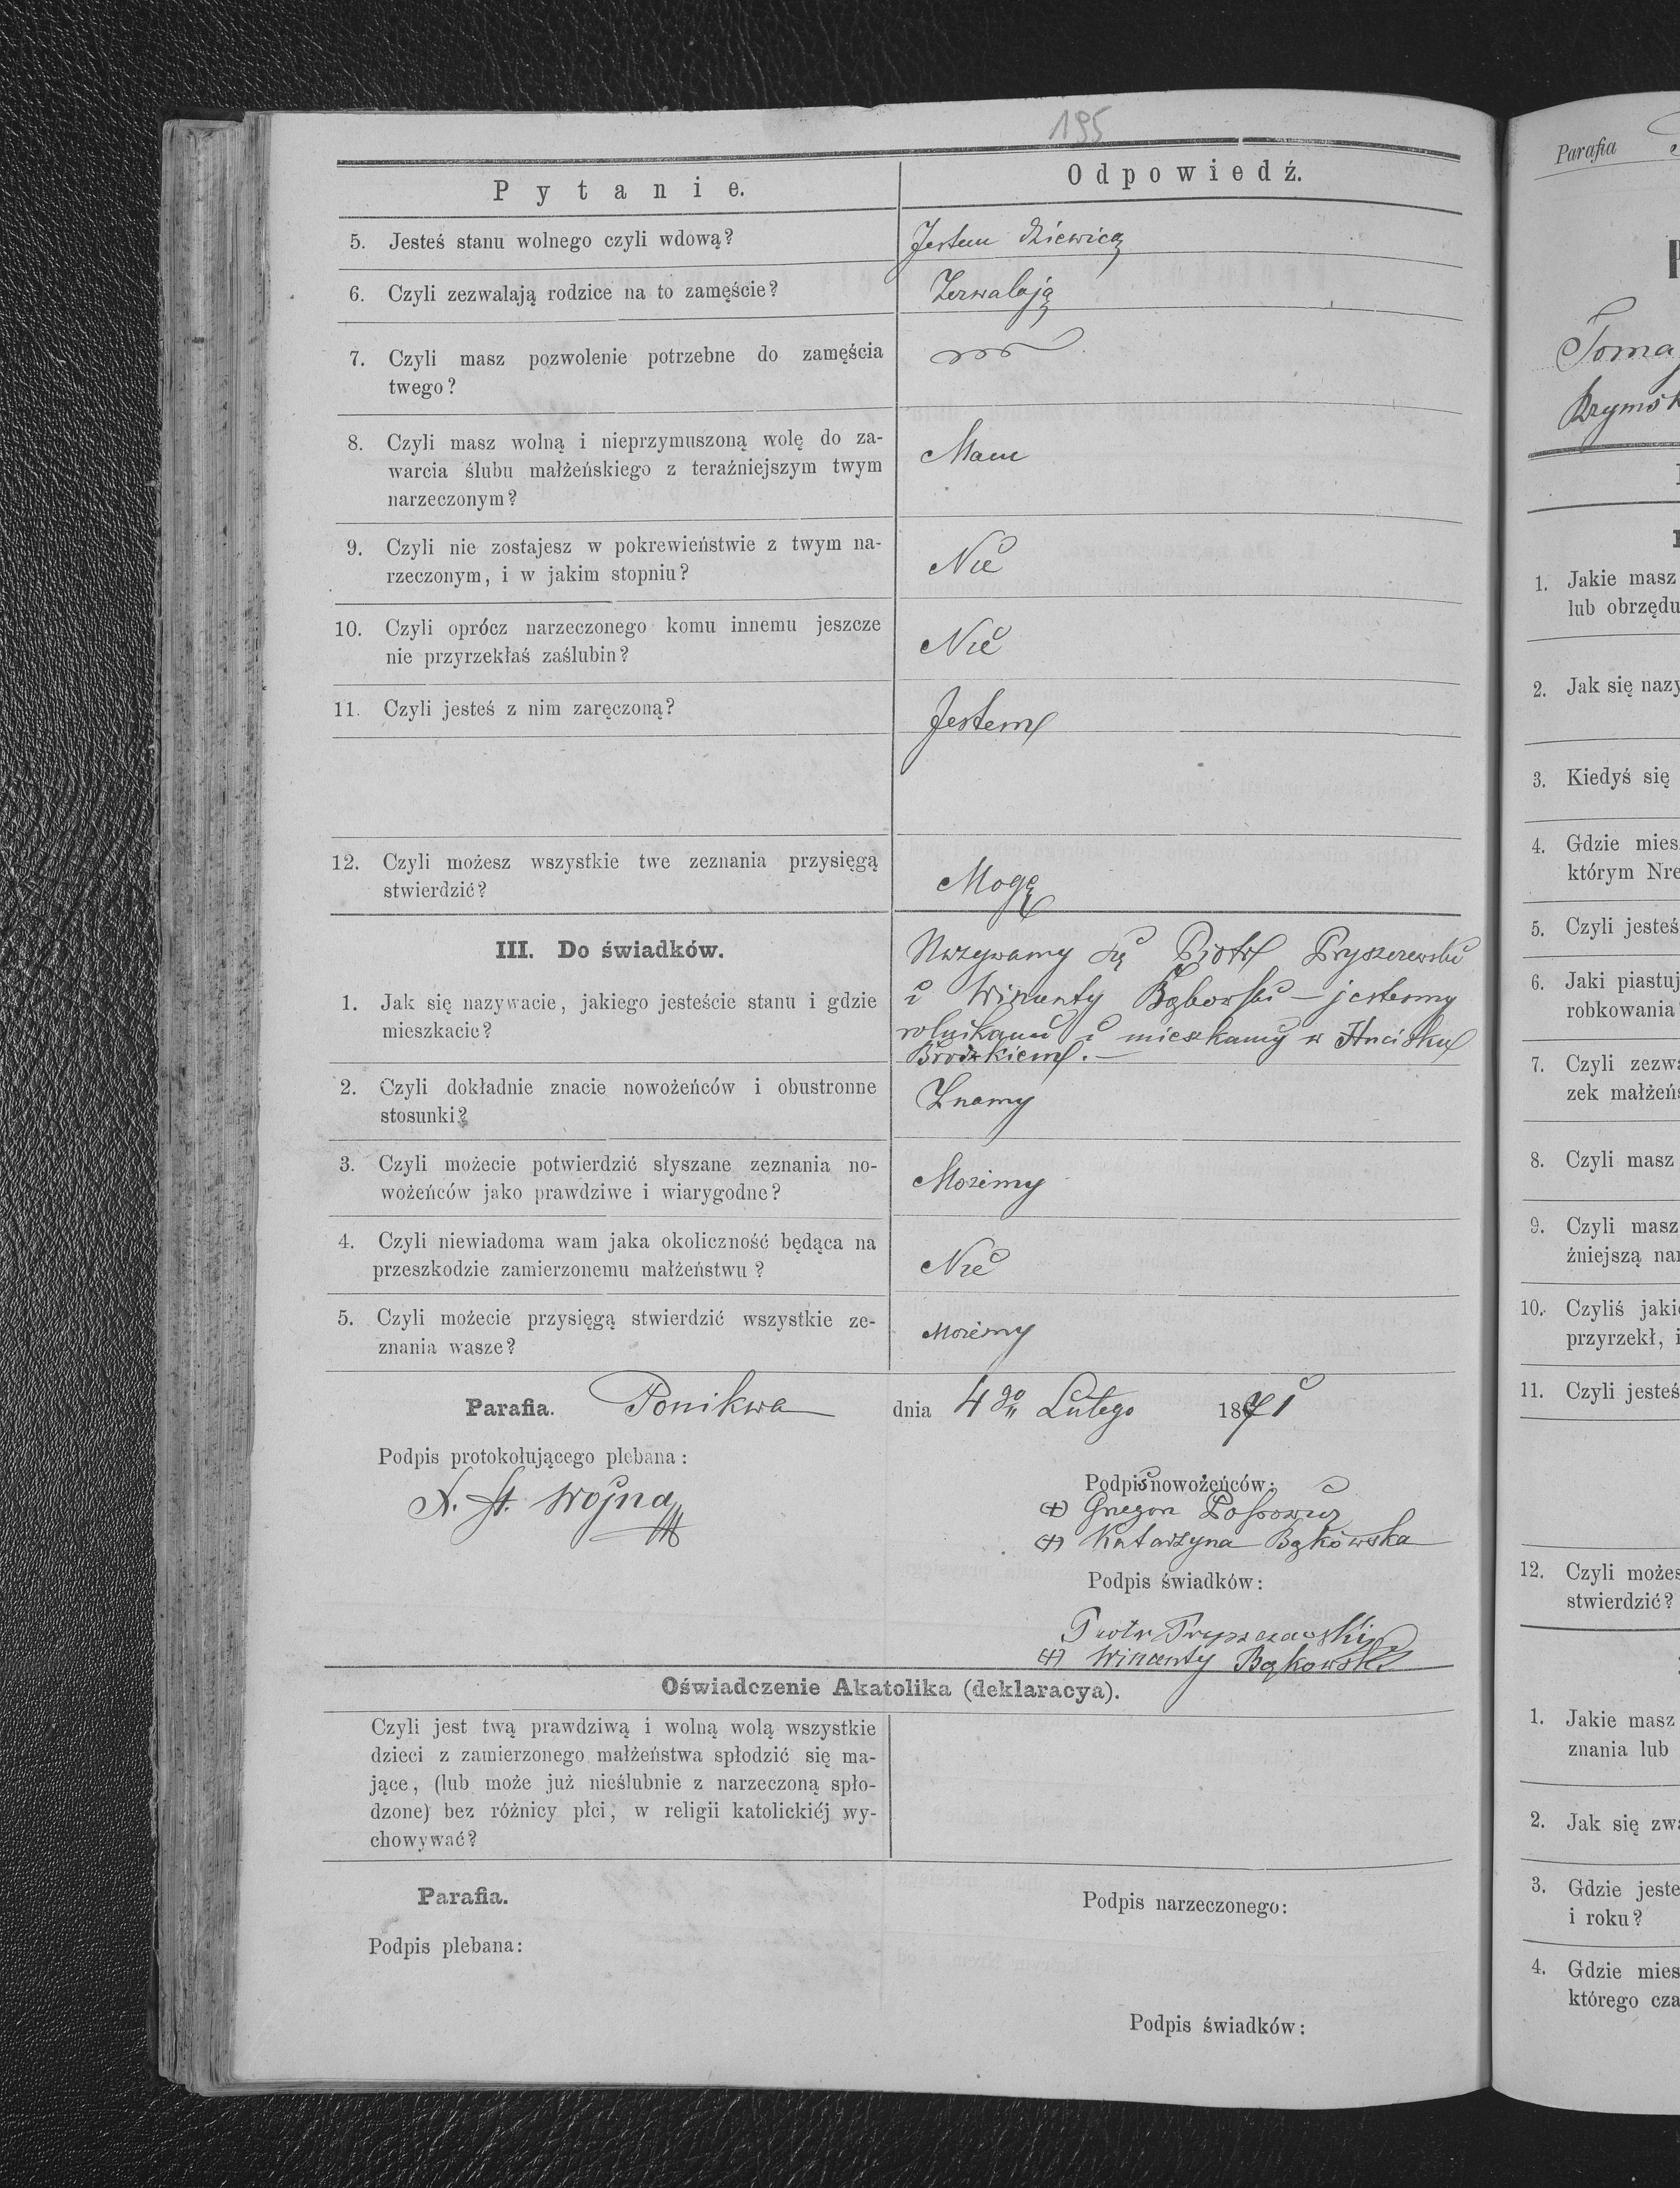 195
Pytanie.
Odpowiedź.
5. Jesteś stanu wolnego czyli wdową?
Jestem dziewicą
6. Czyli zezwalają rodzice na to zamęście?
Zezwalają
7. Czyli masz pozwolenie potrzebne do zamęścia
twego?
8. Czyli masz wolną i nieprzymuszoną wolę do za-
warcia ślubu małżeńskiego z teraźniejszym twym
narzeczonym?
Mam
9. Czyli nie zostajesz w pokrewieństwie z twym na-
rzeczonym, i w jakim stopniu?
Nie
10. Czyli oprócz narzeczonego komu innemu jeszcze
nie przyrzekłaś zaślubin?
Nie
11. Czyli jesteś z nim zaręczoną?
Jestem
12. Czyli możesz wszystkie twe zeznania przysięgą
stwierdzić?
Mogę
III. Do świadków.
1. Jak się nazywacie, jakiego jesteście stanu i gdzie
mieszkacie?
Nazywamy się Piotr
i Wincenty Bąkowski – jestesmy
rolnikami i mieszkamy w Hucisku
Brodzkiem. –
2. Czyli dokładnie znacie nowożeńców i obustronne
stosunki?
Znamy
3. Czyli możecie potwierdzić słyszane zeznania no-
wożeńców jako prawdziwe i wiarygodne?
Możemy
4. Czyli niewiadoma wam jaka okoliczność będąca na
przeszkodzie zamierzonemu małżeństwu?
Nie
5. Czyli możecie przysięgą stwierdzić wszystkie ze-
znania wasze?
Możemy
Parafia. Ponikwa dnia 4go Lutego 1871
Podpis protokołującego plebana:
X. St. Wojna
Podpis nowożeńców:
(+) Grzegorz
(+) Katarzyna Bąkowska
Podpis świadków:
Piotr
(+) Wincenty Bąkowski
Oświadczenie Akatolika (deklaracya).
Czyli jest twą prawdziwą i wolną wolą wszystkie
dzieci z zamierzonego małżeństwa spłodzić się ma-
jące, (lub może już nieślubnie z narzeczoną spło-
dzone) bez różnicy płci, w religii katolickiéj wy-
chowywać?
Parafia.
Podpis plebana:
Podpis narzeczonego:
Podpis świadków:
Parafia
Toma
Rzymsk
1. Jakie masz
lub obrzędu
2. Jak się nazy
3. Kiedyś się
4. Gdzie mies
którym Nre
5. Czyli jesteś
6. Jaki piastuj
robkowania
7. Czyli zezwa
zek małżeńs
8. Czyli masz
9. Czyli masz
źniejszą nar
10. Czyliś jakie
przyrzekł, i
11. Czyli jesteś
12. Czyli możes
stwierdzić?
1. Jakie masz
znania lub
2. Jak się zwa
3. Gdzie jeste
i roku?
4. Gdzie mies
którego cza